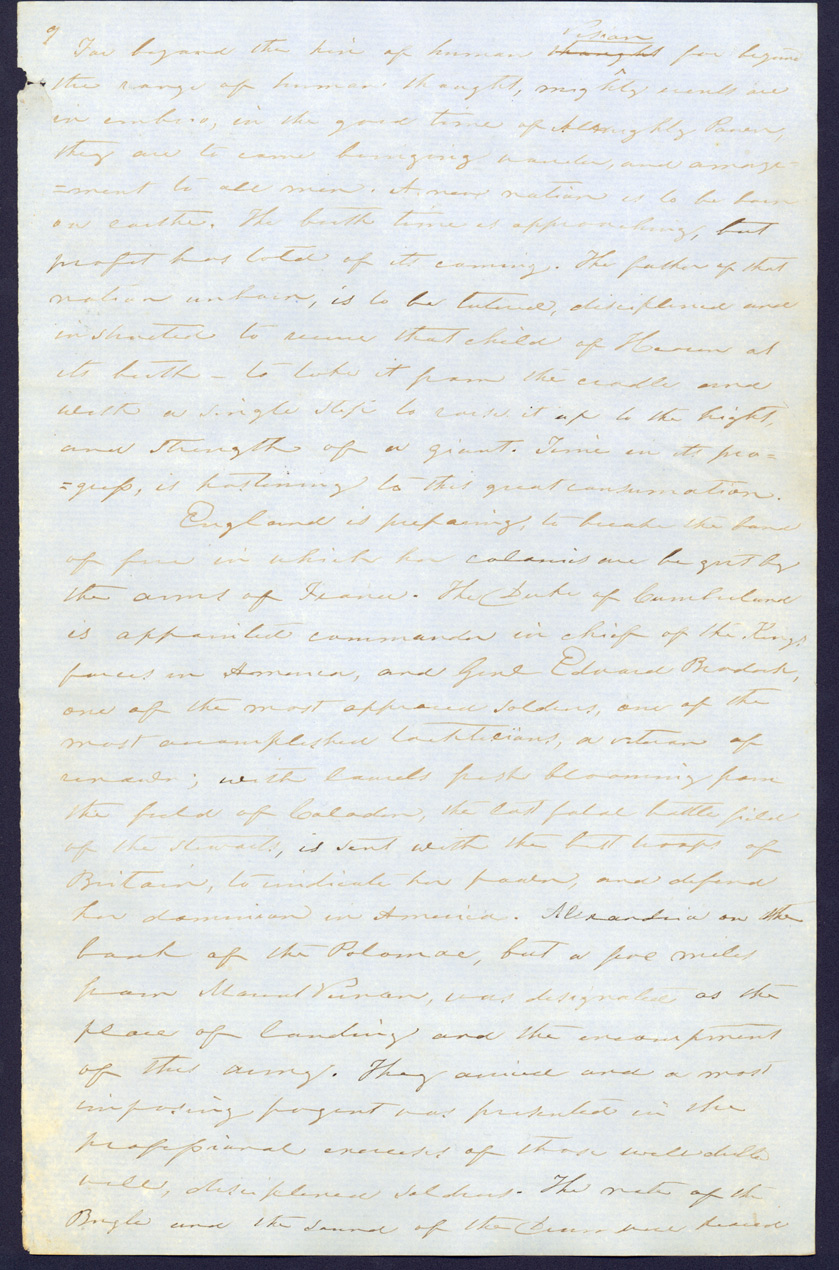 9
Vision
Far beyond the kin of human thought far beyond
the range of human thought, mighty events are
in embrio, in the good time of Almighty Power,
they are to come bringing wonder, and amaze=
=ment to all men. A new nation is to be born
on earth. The birth time is approaching, but
profit has told of its coming. The father of that
nation unborn, is to be tutored, disciplined and
instructed to receive that child of Heaven at
its birth – to take it from the cradle and
with a single step to raise it up to the hight,
and strength of a giant. Time in its pro=
=gress, is hastining to this great consumation.
England is preparing, to break the band
of fire in which her colonies are be girt by
the arms of France. The Duke of Cumberland
is appointed commander in chief of the Kings
forces in America, and Genl Edward Bradock,
one of the most approved soldiers, one of the
most accomplished tackticians, a vetran of
renown; with laurels fresh blooming from
the field of Coloden, the last fatal battle field
of the Stewarts, is sent with the best troops of
Britain, to vindicate her power, and defend
her dominion in America. Alexandria on the
bank of the Potomac, but a few miles
from Mount Vernon, was designated as the
place of landing and the encampment
of this army. They arrived and a most
imposing pagent was presented in the
professional exercises of those well drilled
well, disciplined soldiers. The note of the
Bugle and the sound of the Drum were heard